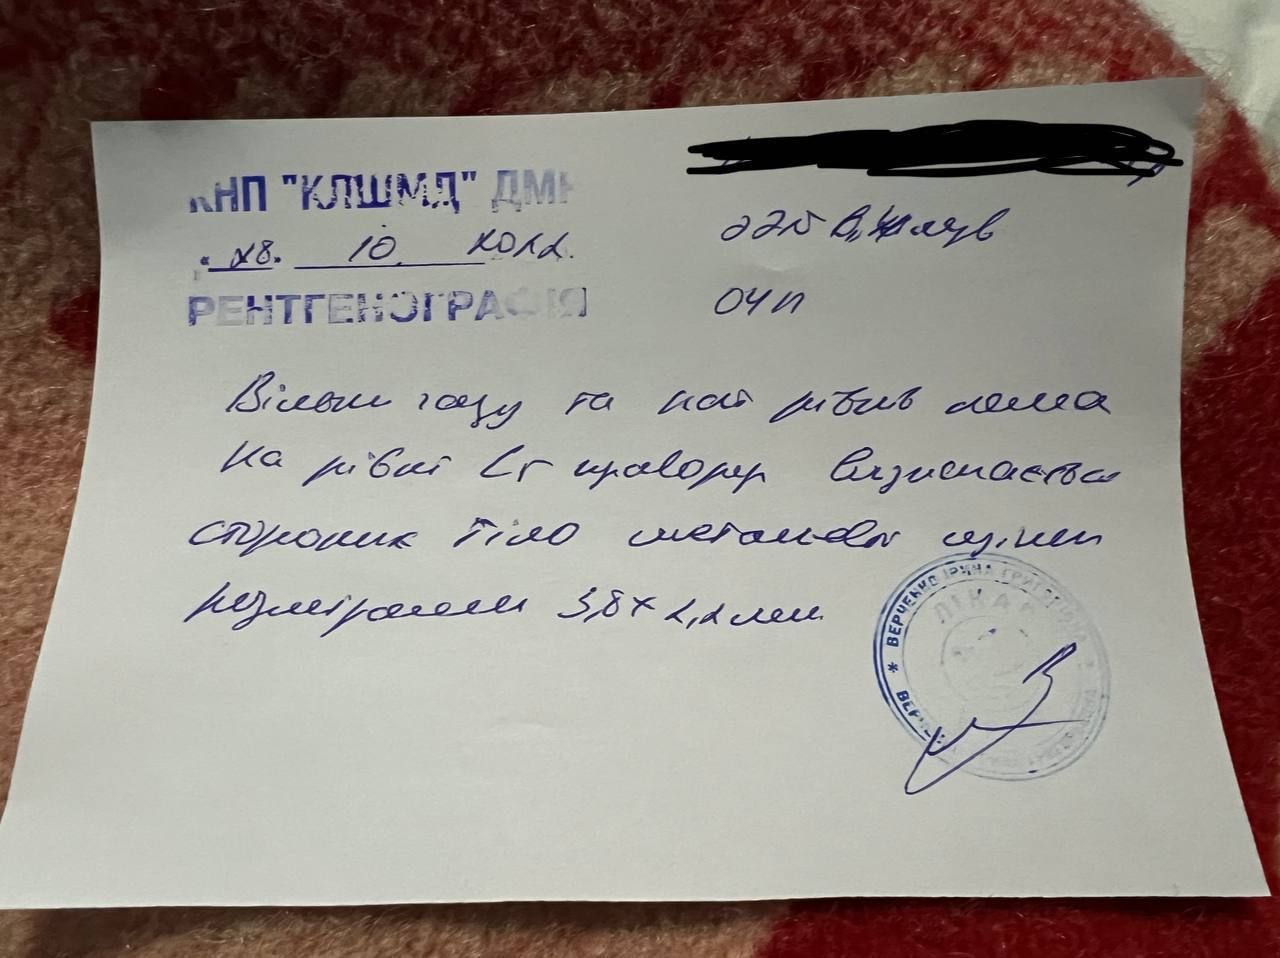 КНП "КЛШМД" ДМ
28. 10. 2022.
РЕНТГЕНОГРАФІЯ
ОЧП
Вільни газу та пат рівнів нема
На рівні L5 праворуч визначається
стороннє тіло металевої щільн
розмірами 3,8х2,2мм
ВЕРЧЕНКО ІРИНА ГРИГОРІВНА
ЛІКАР